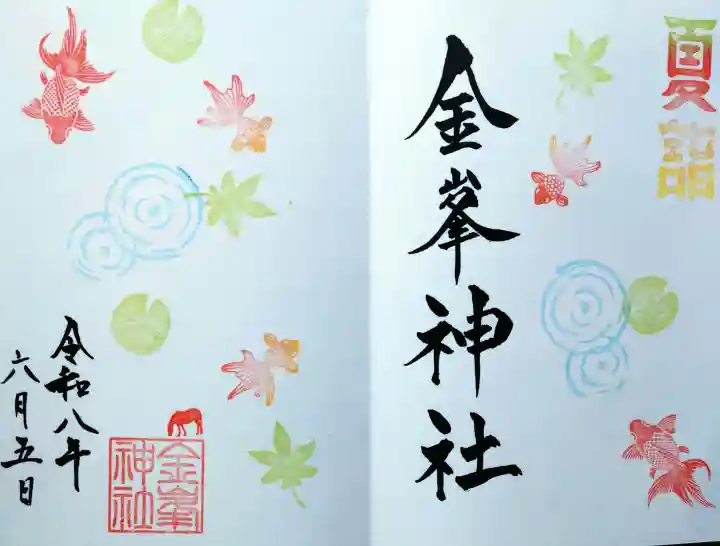 夏詣
金峯神社
令和八年
六月五日
金峯
神社